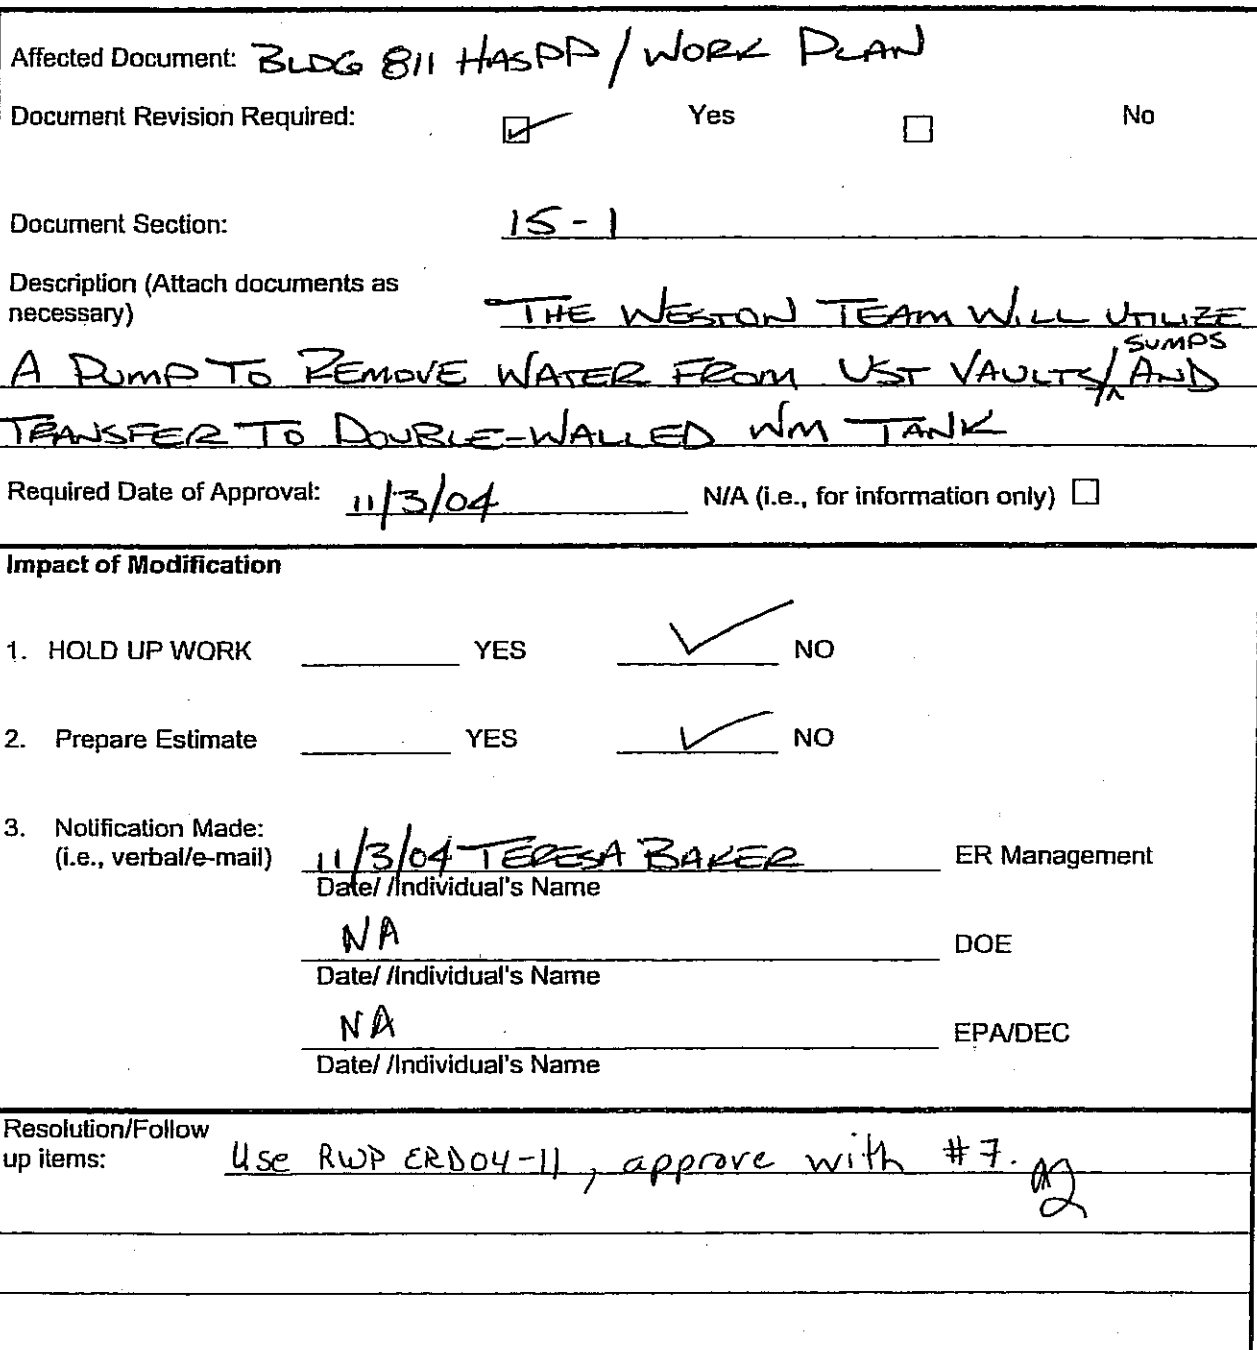 Affected Document: BLDG 811 HASPP/WORK PLAN
Document Revision Required: Yes No
Document Section: 15-1
Description (Attach documents as
necessary) THE WESTON TEAM WILL UTILIZE
A PUMP TO REMOVE WATER FROM UST VAULTS/SUMPS AND
TRANSFER TO DOUBLE-WALLED WM TANK
Required Date of Approval: 11/3/04 N/A (i.e., for information only)
Impact of Modification
1. HOLD UP WORK YES NO
2. Prepare Estimate YES NO
3. Notification Made:
(i.e., verbal/e-mail) 11/3/04 TERESA BAKER ER Management
Date/ /Individual's Name
NA DOE
Date/ /Individual's Name
NA EPA/DEC
Date/ /Individual's Name
Resolution/Follow
up items: Use RWP ERD04-11, approve with #7.